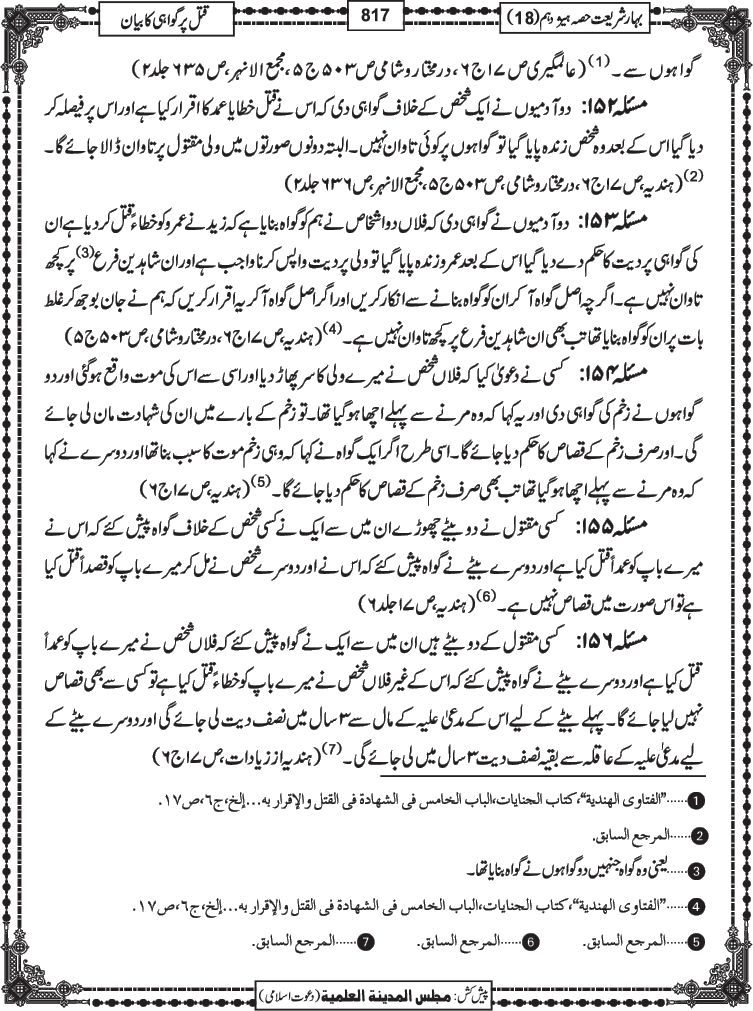 بہارِشریعت حصہ ہیژدہم (18)
817
قتل پر گواہی کا بیان
گواہوں سے۔(1) (عالمگیری ص ۱۷ ج ۶، درمختار وشامی ص ۵۰۳ ج ۵، مجمع الانہر، ص ۶۳۵ جلد ۲)
مسئلہ ۱۵۲: دو آدمیوں نے ایک شخص کے خلاف گواہی دی کہ اس نے قتل خطا یا عمد کا اقرار کیا ہے اور اس پر فیصلہ کر
دیا گیا اس کے بعد وہ شخص زندہ پایا گیا تو گواہوں پر کوئی تاوان نہیں۔ البتہ دونوں صورتوں میں ولی مقتول پر تاوان ڈالا جائے گا۔
(2) (ہندیہ، ص ۱۷ ج ۶، درمختار وشامی، ص ۵۰۳ ج ۵، مجمع الانہر، ص ۶۳۶ جلد ۲)
مسئلہ ۱۵۳: دو آدمیوں نے گواہی دی کہ فلاں دو اشخاص نے ہم کو گواہ بنایا ہے کہ زید نے عمرو کو خطاءً قتل کر دیا ہے ان
کی گواہی پر دیت کا حکم دے دیا گیا اس کے بعد عمرو زندہ پایا گیا تو ولی پر دیت واپس کرنا واجب ہے اور ان شاہدین فرع(3) پر کچھ
تاوان نہیں ہے۔ اگرچہ اصل گواہ آ کر ان کو گواہ بنانے سے انکار کریں اور اگر اصل گواہ آ کر یہ اقرار کریں کہ ہم نے جان بوجھ کر غلط
بات پر ان کو گواہ بنایا تھا تب بھی ان شاہدین فرع پر کچھ تاوان نہیں ہے۔(4) (ہندیہ، ص ۱۷ ج ۶، درمختار وشامی، ص ۵۰۳ ج ۵)
مسئلہ ۱۵۴: کسی نے دعویٰ کیا کہ فلاں شخص نے میرے ولی کا سر پھاڑ دیا اور اسی سے اس کی موت واقع ہوگئی اور دو
گواہوں نے زخم کی گواہی دی اور یہ کہا کہ وہ مرنے سے پہلے اچھا ہوگیا تھا۔ تو زخم کے بارے میں ان کی شہادت مان لی جائے
گی۔ اور صرف زخم کے قصاص کا حکم دیا جائے گا۔ اسی طرح اگر ایک گواہ نے کہا کہ وہی زخم موت کا سبب بنا تھا اور دوسرے نے کہا
کہ وہ مرنے سے پہلے اچھا ہوگیا تھا تب بھی صرف زخم کے قصاص کا حکم دیا جائے گا۔(5) (ہندیہ، ص ۱۷ ج ۶)
مسئلہ ۱۵۵: کسی مقتول نے دو بیٹے چھوڑے ان میں سے ایک نے کسی شخص کے خلاف گواہ پیش کئے کہ اس نے
میرے باپ کو عمداً قتل کیا ہے اور دوسرے بیٹے نے گواہ پیش کئے کہ اس نے اور دوسرے شخص نے مل کر میرے باپ کو قصداً قتل کیا
ہے تو اس صورت میں قصاص نہیں ہے۔(6) (ہندیہ، ص ۱۷ جلد ۶)
مسئلہ ۱۵۶: کسی مقتول کے دو بیٹے ہیں ان میں سے ایک نے گواہ پیش کئے کہ فلاں شخص نے میرے باپ کو عمداً
قتل کیا ہے اور دوسرے بیٹے نے گواہ پیش کئے کہ اس کے غیر فلاں شخص نے میرے باپ کو خطاءً قتل کیا ہے تو کسی سے بھی قصاص
نہیں لیا جائے گا۔ پہلے بیٹے کے لیے اس کے مدعیٰ علیہ کے مال سے ۳ سال میں نصف دیت لی جائے گی اور دوسرے بیٹے کے
لیے مدعیٰ علیہ کے عاقلہ سے بقیہ نصف دیت ۳ سال میں لی جائے گی۔(7) (ہندیہ از زیادات، ص ۱۷ ج ۶)
1......"الفتاوی الھندیۃ"، کتاب الجنایات، الباب الخامس فی الشھادۃ فی القتل والإقرار بہ...إلخ، ج۶، ص۱۷.
2......المرجع السابق.
3......یعنی وہ گواہ جنہیں دو گواہوں نے گواہ بنایا تھا۔
4......"الفتاوی الھندیۃ"، کتاب الجنایات، الباب الخامس فی الشھادۃ فی القتل والإقرار بہ...إلخ، ج۶، ص۱۷.
5......المرجع السابق. 6......المرجع السابق. 7......المرجع السابق.
پیش کش: مجلس المدینۃ العلمیۃ (دعوت اسلامی)